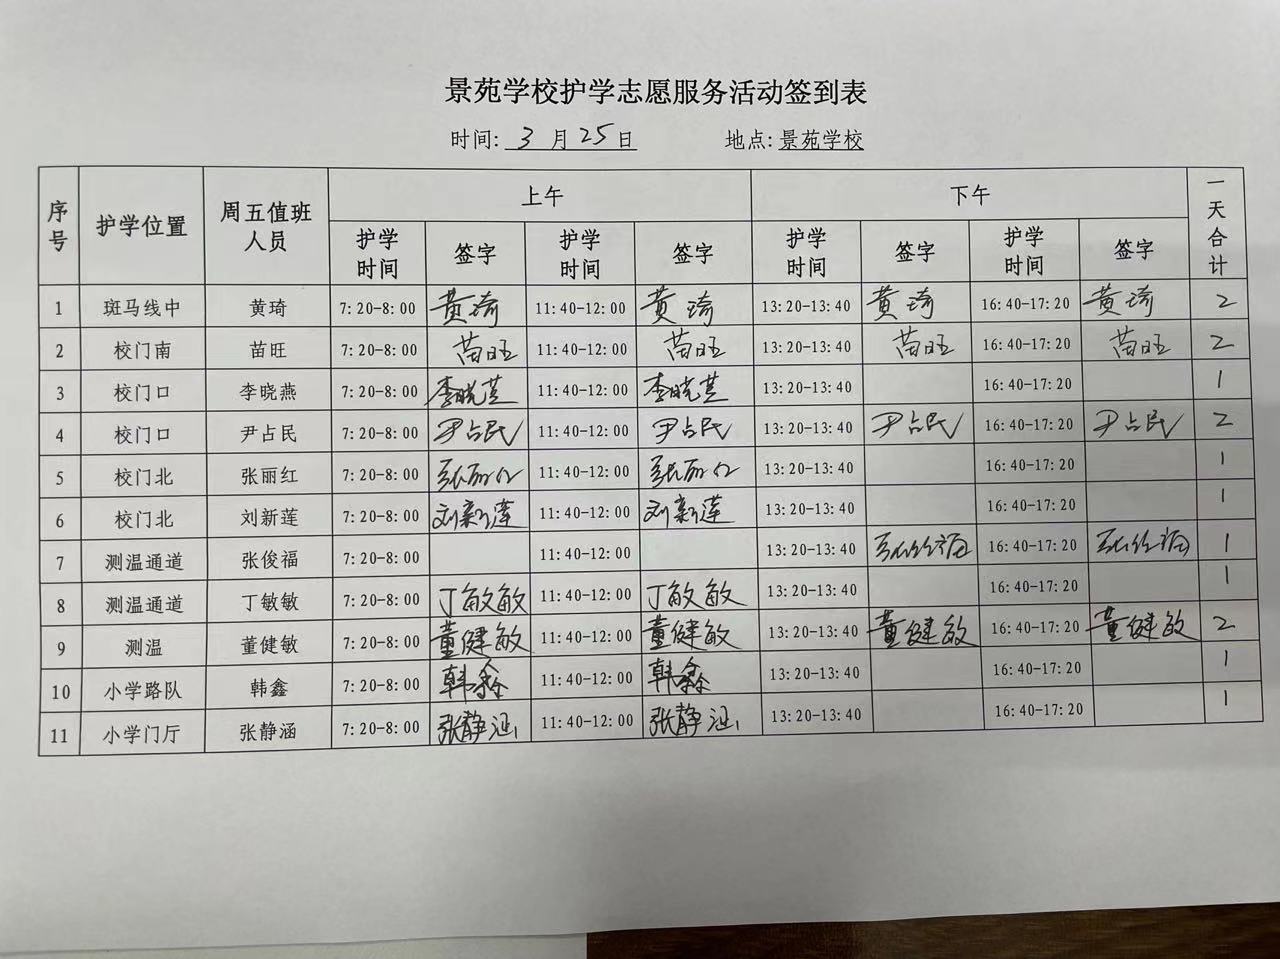 景苑学校护学志愿服务活动签到表
时间: 3 月 25 日 地点: 景苑学校
序号 护学位置 周五值班人员 上午 下午 一天合计
护学时间 签字 护学时间 签字 护学时间 签字 护学时间 签字
1 斑马线中 黄琦 7:20-8:00 黄琦 11:40-12:00 黄琦 13:20-13:40 黄琦 16:40-17:20 黄琦 2
2 校门南 苗旺 7:20-8:00 苗旺 11:40-12:00 苗旺 13:20-13:40 苗旺 16:40-17:20 苗旺 2
3 校门口 李晓燕 7:20-8:00 李晓燕 11:40-12:00 李晓燕 13:20-13:40 16:40-17:20 1
4 校门口 尹占民 7:20-8:00 尹占民 11:40-12:00 尹占民 13:20-13:40 尹占民 16:40-17:20 尹占民 2
5 校门北 张丽红 7:20-8:00 张丽红 11:40-12:00 张丽红 13:20-13:40 16:40-17:20 1
6 校门北 刘新莲 7:20-8:00 刘新莲 11:40-12:00 刘新莲 13:20-13:40 16:40-17:20 1
7 测温通道 张俊福 7:20-8:00 11:40-12:00 13:20-13:40 张俊福 16:40-17:20 张俊福 1
8 测温通道 丁敏敏 7:20-8:00 丁敏敏 11:40-12:00 丁敏敏 13:20-13:40 16:40-17:20 1
9 测温 董健敏 7:20-8:00 董健敏 11:40-12:00 董健敏 13:20-13:40 董健敏 16:40-17:20 董健敏 2
10 小学路队 韩鑫 7:20-8:00 韩鑫 11:40-12:00 韩鑫 13:20-13:40 16:40-17:20 1
11 小学门厅 张静涵 7:20-8:00 张静涵 11:40-12:00 张静涵 13:20-13:40 16:40-17:20 1